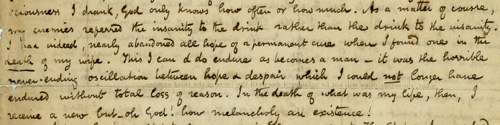 sciousness I drank, God only knows how often or how much. As a matter of course
my enemies referred the insanity to the drink rather than the drink to the insanity.
I had indeed, nearly abandoned all hope of a permanent cure when I found one in the
death of my wife. This I can & do endure as becomes a man — it was the horrible
never-ending oscillation between hope & despair which I could not longer have
endured without total loss of reason. In the death of what was my life, then, I
receive a new but — oh God! how melancholy an existence.